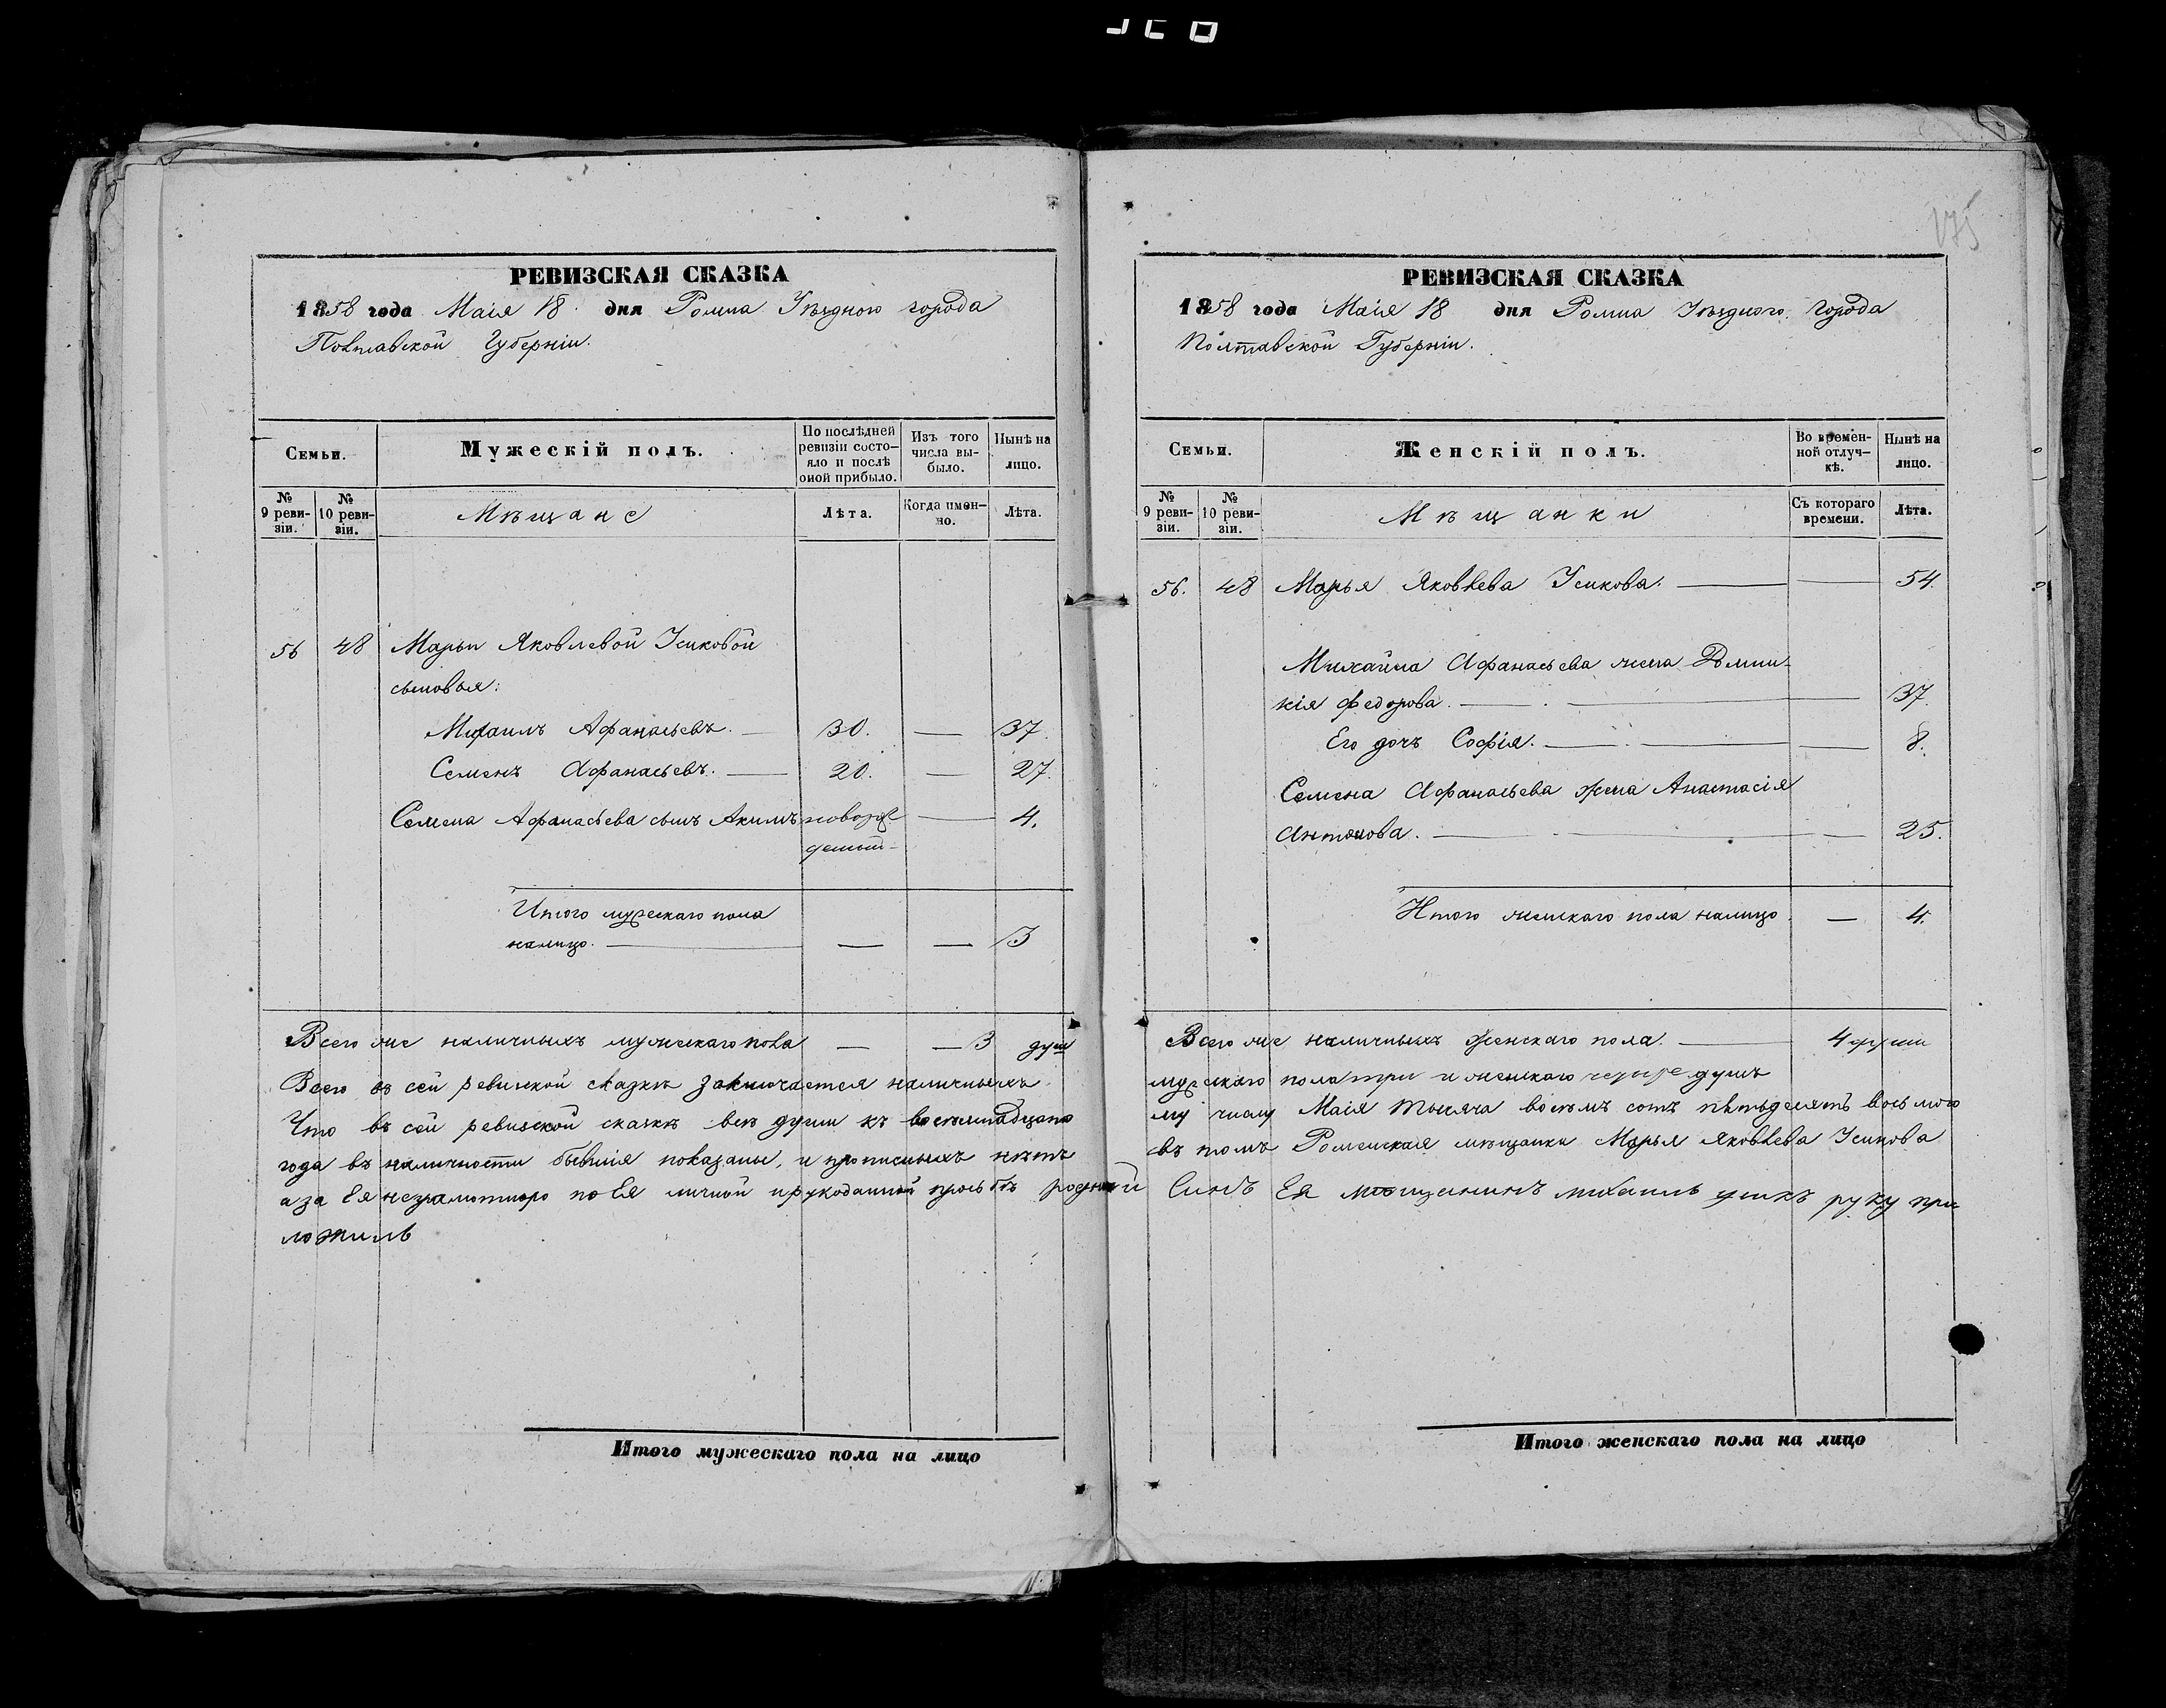 175
РЕВИЗСКАЯ СКАЗКА
1858 года Маія 18 дня Ромна Уѣзднаго города
Полтавской Губерніи.
Семьи.
Мужескій полъ.
По послѣдней ревизіи состо-яло и послѣ оной прибыло.
Изъ того числа вы-было.
Нынѣ на лицо.
№ 9 реви-зіи.
№ 10 реви-зіи.
Мѣщане
Лѣта.
Когда имен-но.
Лѣта.
56 48 Марьи Яковлевой Усиковой
сыновья:
Михаилъ Афанасьевъ. — 30. — 37.
Семенъ Афанасьевъ. — 20. — 27.
Семена Афанасьева сынъ Акимъ новорж — 4.
денный
Итого мужескаго пола
налицо. — — — 3
Всего же наличныхъ мужескаго пола — — 3 душ
Всего въ сей ревизской сказкѣ заключается наличныхъ
Что въ сей ревизской сказкѣ всѣ души къ восемнадцато
года въ наличности бывшія показаны, и прописныхъ нѣтъ
а за Ея неграмотною по Ея личной и рукоданной прозьбѣ родный
ложилъ
Итого мужескаго пола на лицо
РЕВИЗСКАЯ СКАЗКА
1858 года Маія 18 дня Ромна Уѣзднаго города
Полтавской Губерніи.
Семьи.
Женскій полъ.
Во времен-ной отлуч-кѣ.
Нынѣ на лицо.
№ 9 реви-зіи.
№ 10 реви-зіи.
Мѣщанки
Съ котораго времени.
Лѣта.
56. 48 Марья Яковлева Усикова. — — 54.
Михайла Афанасьева жена Домни-
кія Федорова. — — 37.
Его дочь Софія. — — 8.
Семена Афанасьева жена Анастасія
Антонова. — — 25.
Итого женскаго пола налицо — 4.
Всего же наличныхъ женскаго пола. — 4 души
мужескаго пола три и женскаго четыре душъ
му числу Маія тысяча восемъ сотъ пятьдесятъ восьмого
въ томъ Роменская мѣщанка Марья Яковлева Усикова
Синъ Ея мѣщанинъ михаилъ усикъ руку при
Итого женскаго пола на лицо